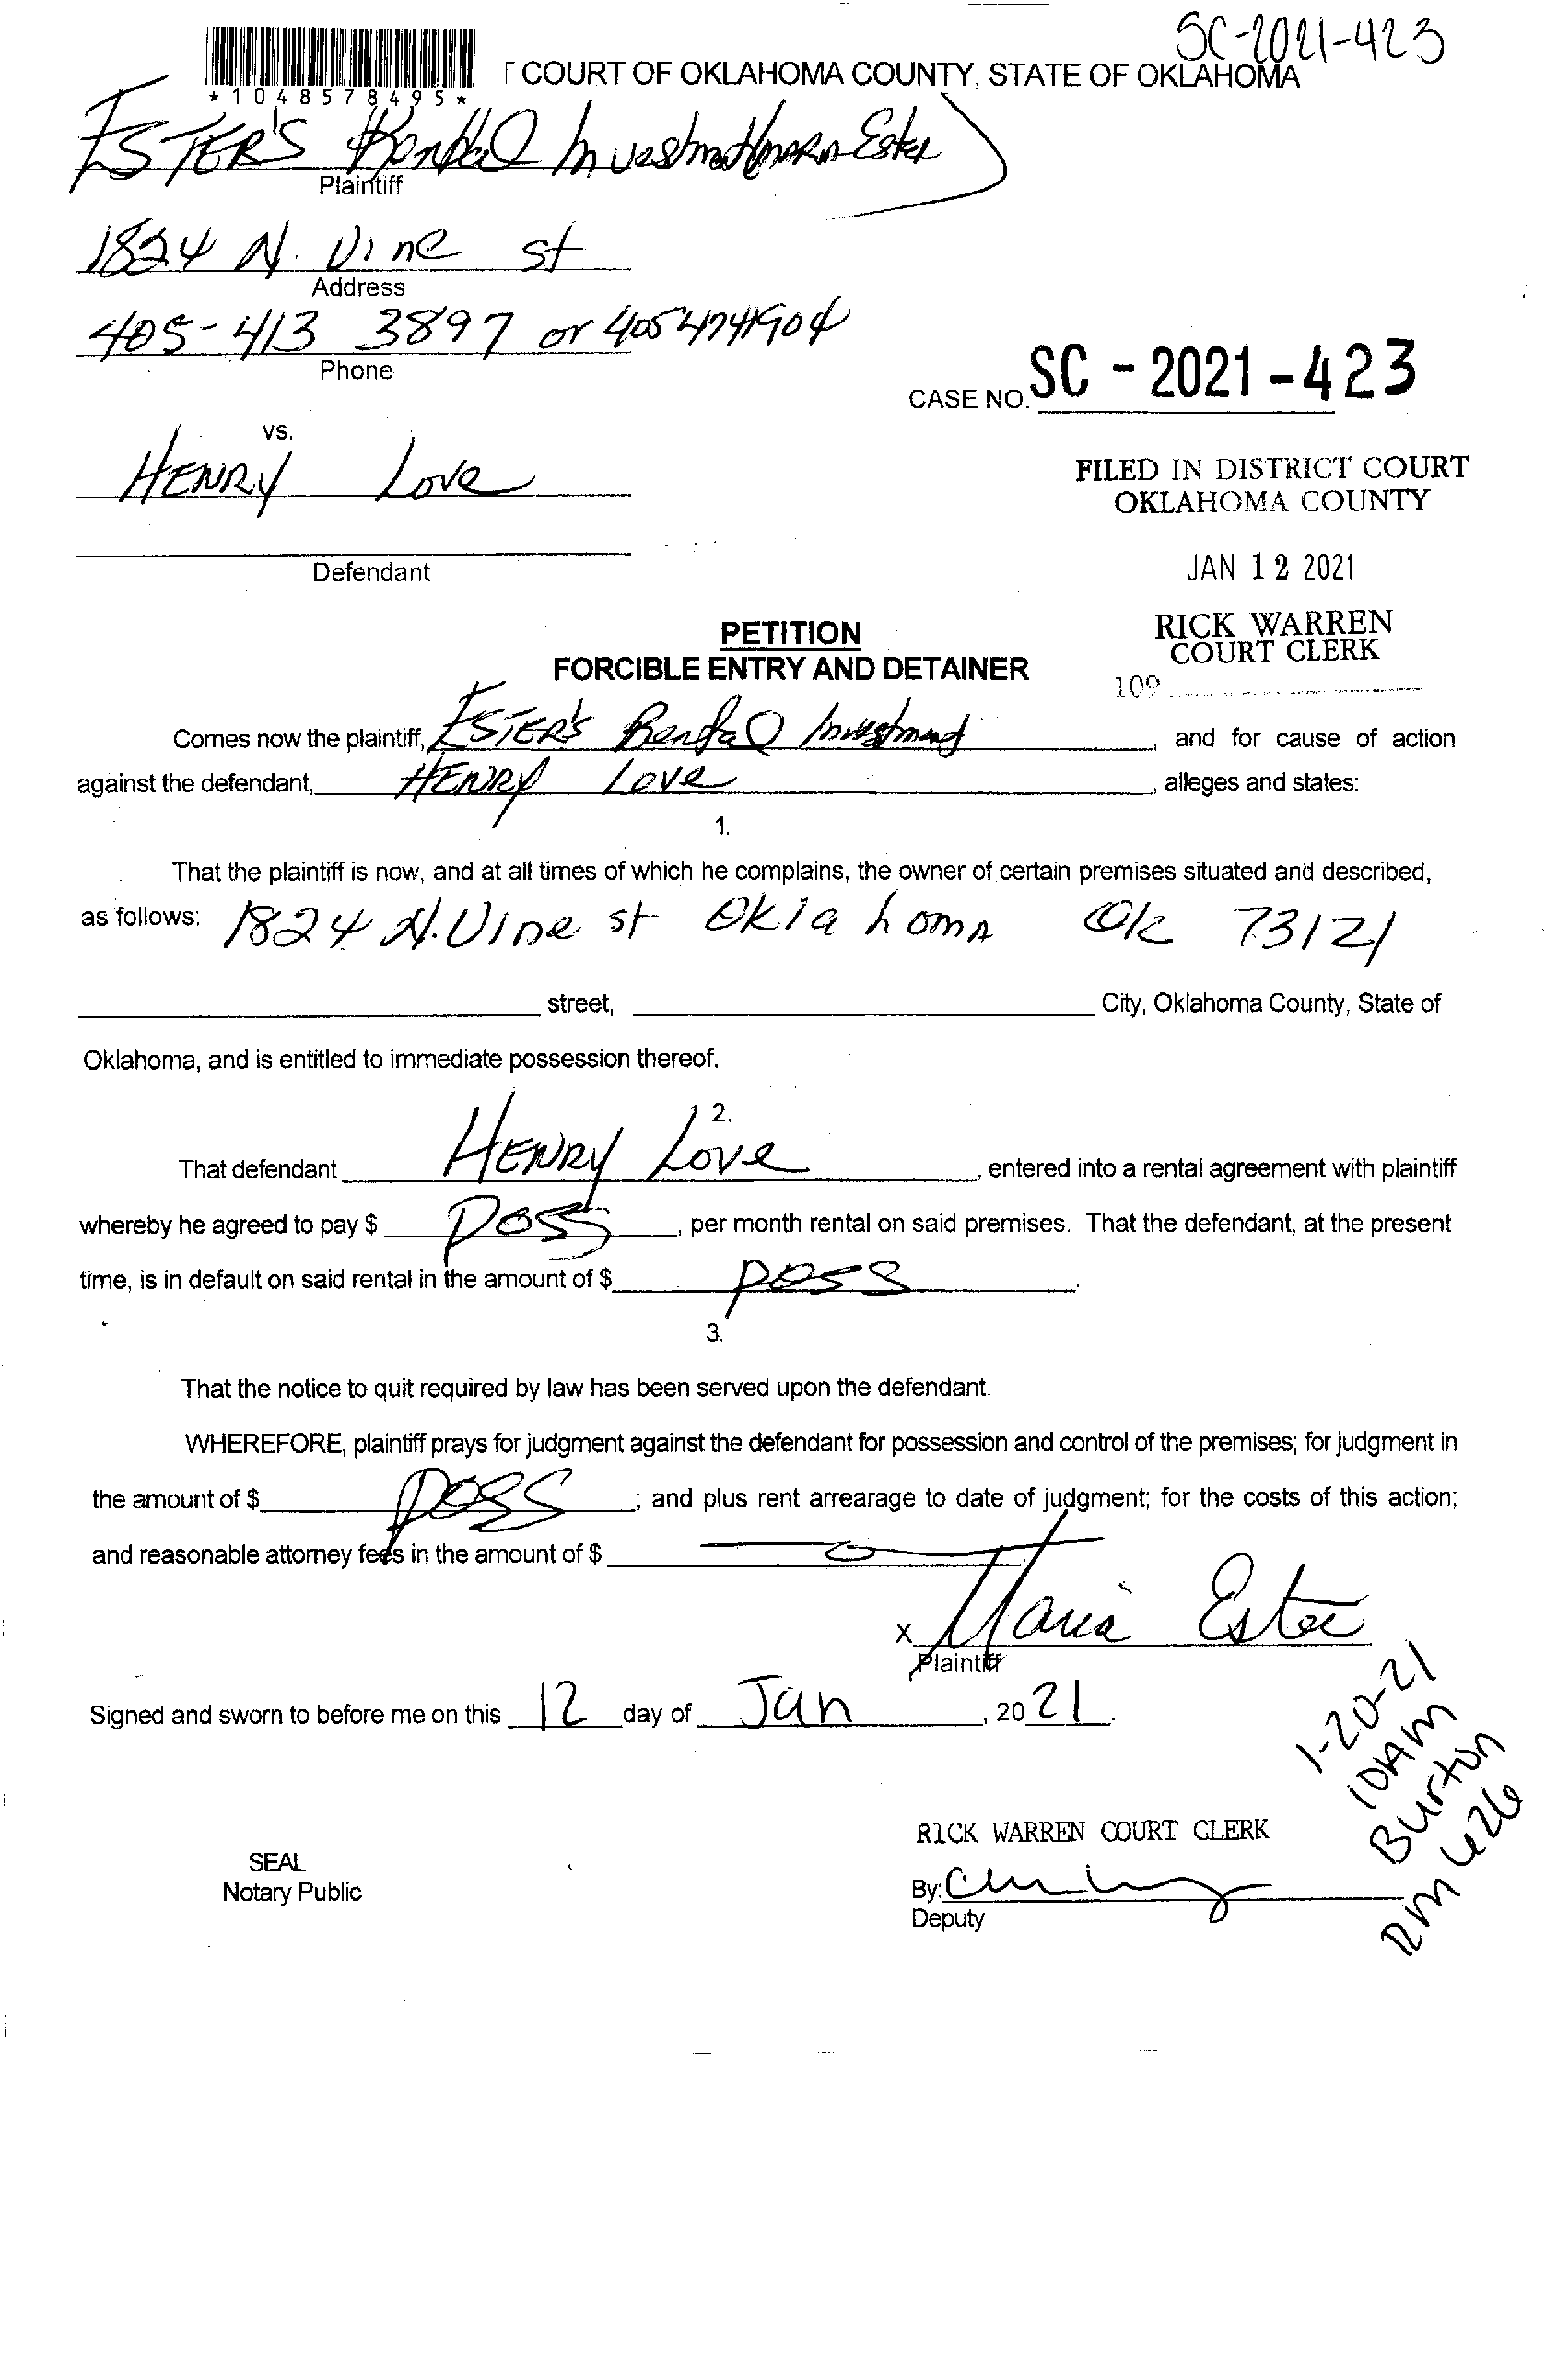 SC-2021-423
COURT OF OKLAHOMA COUNTY, STATE OF OKLAHOMA
*1048578495*
ESTER'S Rental Investment/Maria Ester
Plaintiff
1824 N. Vine st
Address
405-413 3897 or 4054741904
Phone
CASE NO. SC - 2021 - 423
vs.
HENRY Love
FILED IN DISTRICT COURT
OKLAHOMA COUNTY
Defendant
JAN 12 2021
RICK WARREN
COURT CLERK
109
PETITION
FORCIBLE ENTRY AND DETAINER
Comes now the plaintiff, ESTER'S Rental Investment, and for cause of action
against the defendant, HENRY Love, alleges and states:
1.
That the plaintiff is now, and at all times of which he complains, the owner of certain premises situated and described,
as follows: 1824 N. Vine st Oklahoma Ok 73121
street, City, Oklahoma County, State of
Oklahoma, and is entitled to immediate possession thereof.
2.
That defendant HENRY Love, entered into a rental agreement with plaintiff
whereby he agreed to pay $ POSS, per month rental on said premises. That the defendant, at the present
time, is in default on said rental in the amount of $ poss.
3.
That the notice to quit required by law has been served upon the defendant.
WHEREFORE, plaintiff prays for judgment against the defendant for possession and control of the premises; for judgment in
the amount of $ poss; and plus rent arrearage to date of judgment; for the costs of this action;
and reasonable attorney fees in the amount of $ 0.
x Maria Ester
Plaintiff
Signed and sworn to before me on this 12 day of Jan, 2021.
1-20-21
10AM
Burton
RM 426
RICK WARREN COURT CLERK
SEAL
Notary Public
By:
Deputy